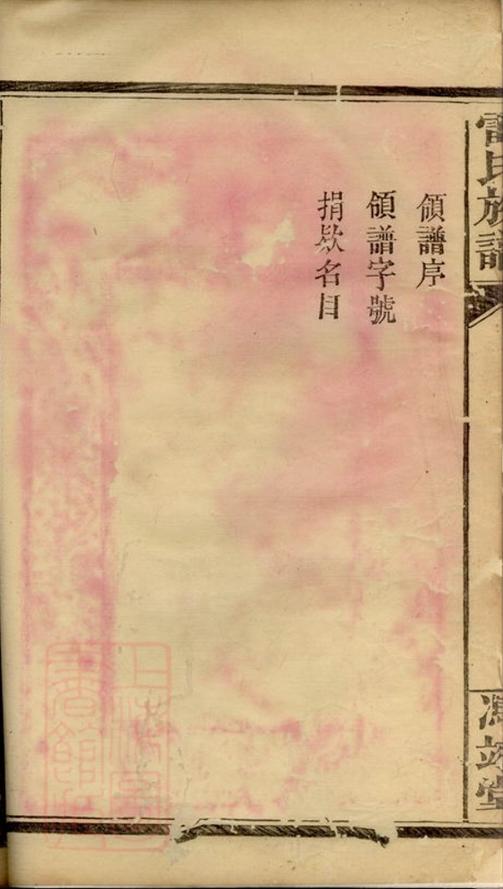 雷氏族譜
馮翊堂
領譜序
領譜字號
捐欵名目